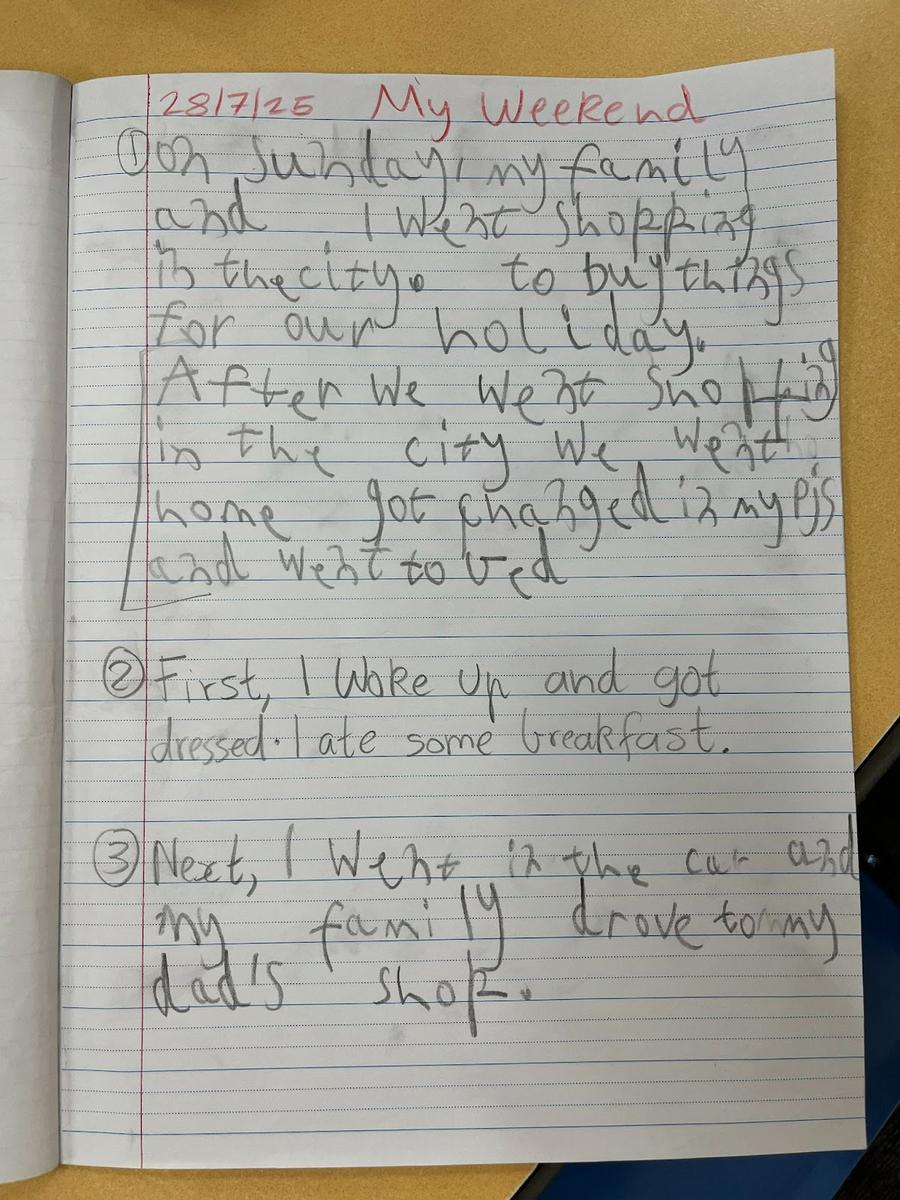 28/7/25 My Weekend
① On Sunday, my family
and I went shopping
in the city. to buy things
for our holiday.
After we went shopping
in the city we went
home got changed in my pjs
and went to bed
② First, I woke up and got
dressed. I ate some breakfast.
③ Next, I went in the car and
my family drove to my
dad's shop.